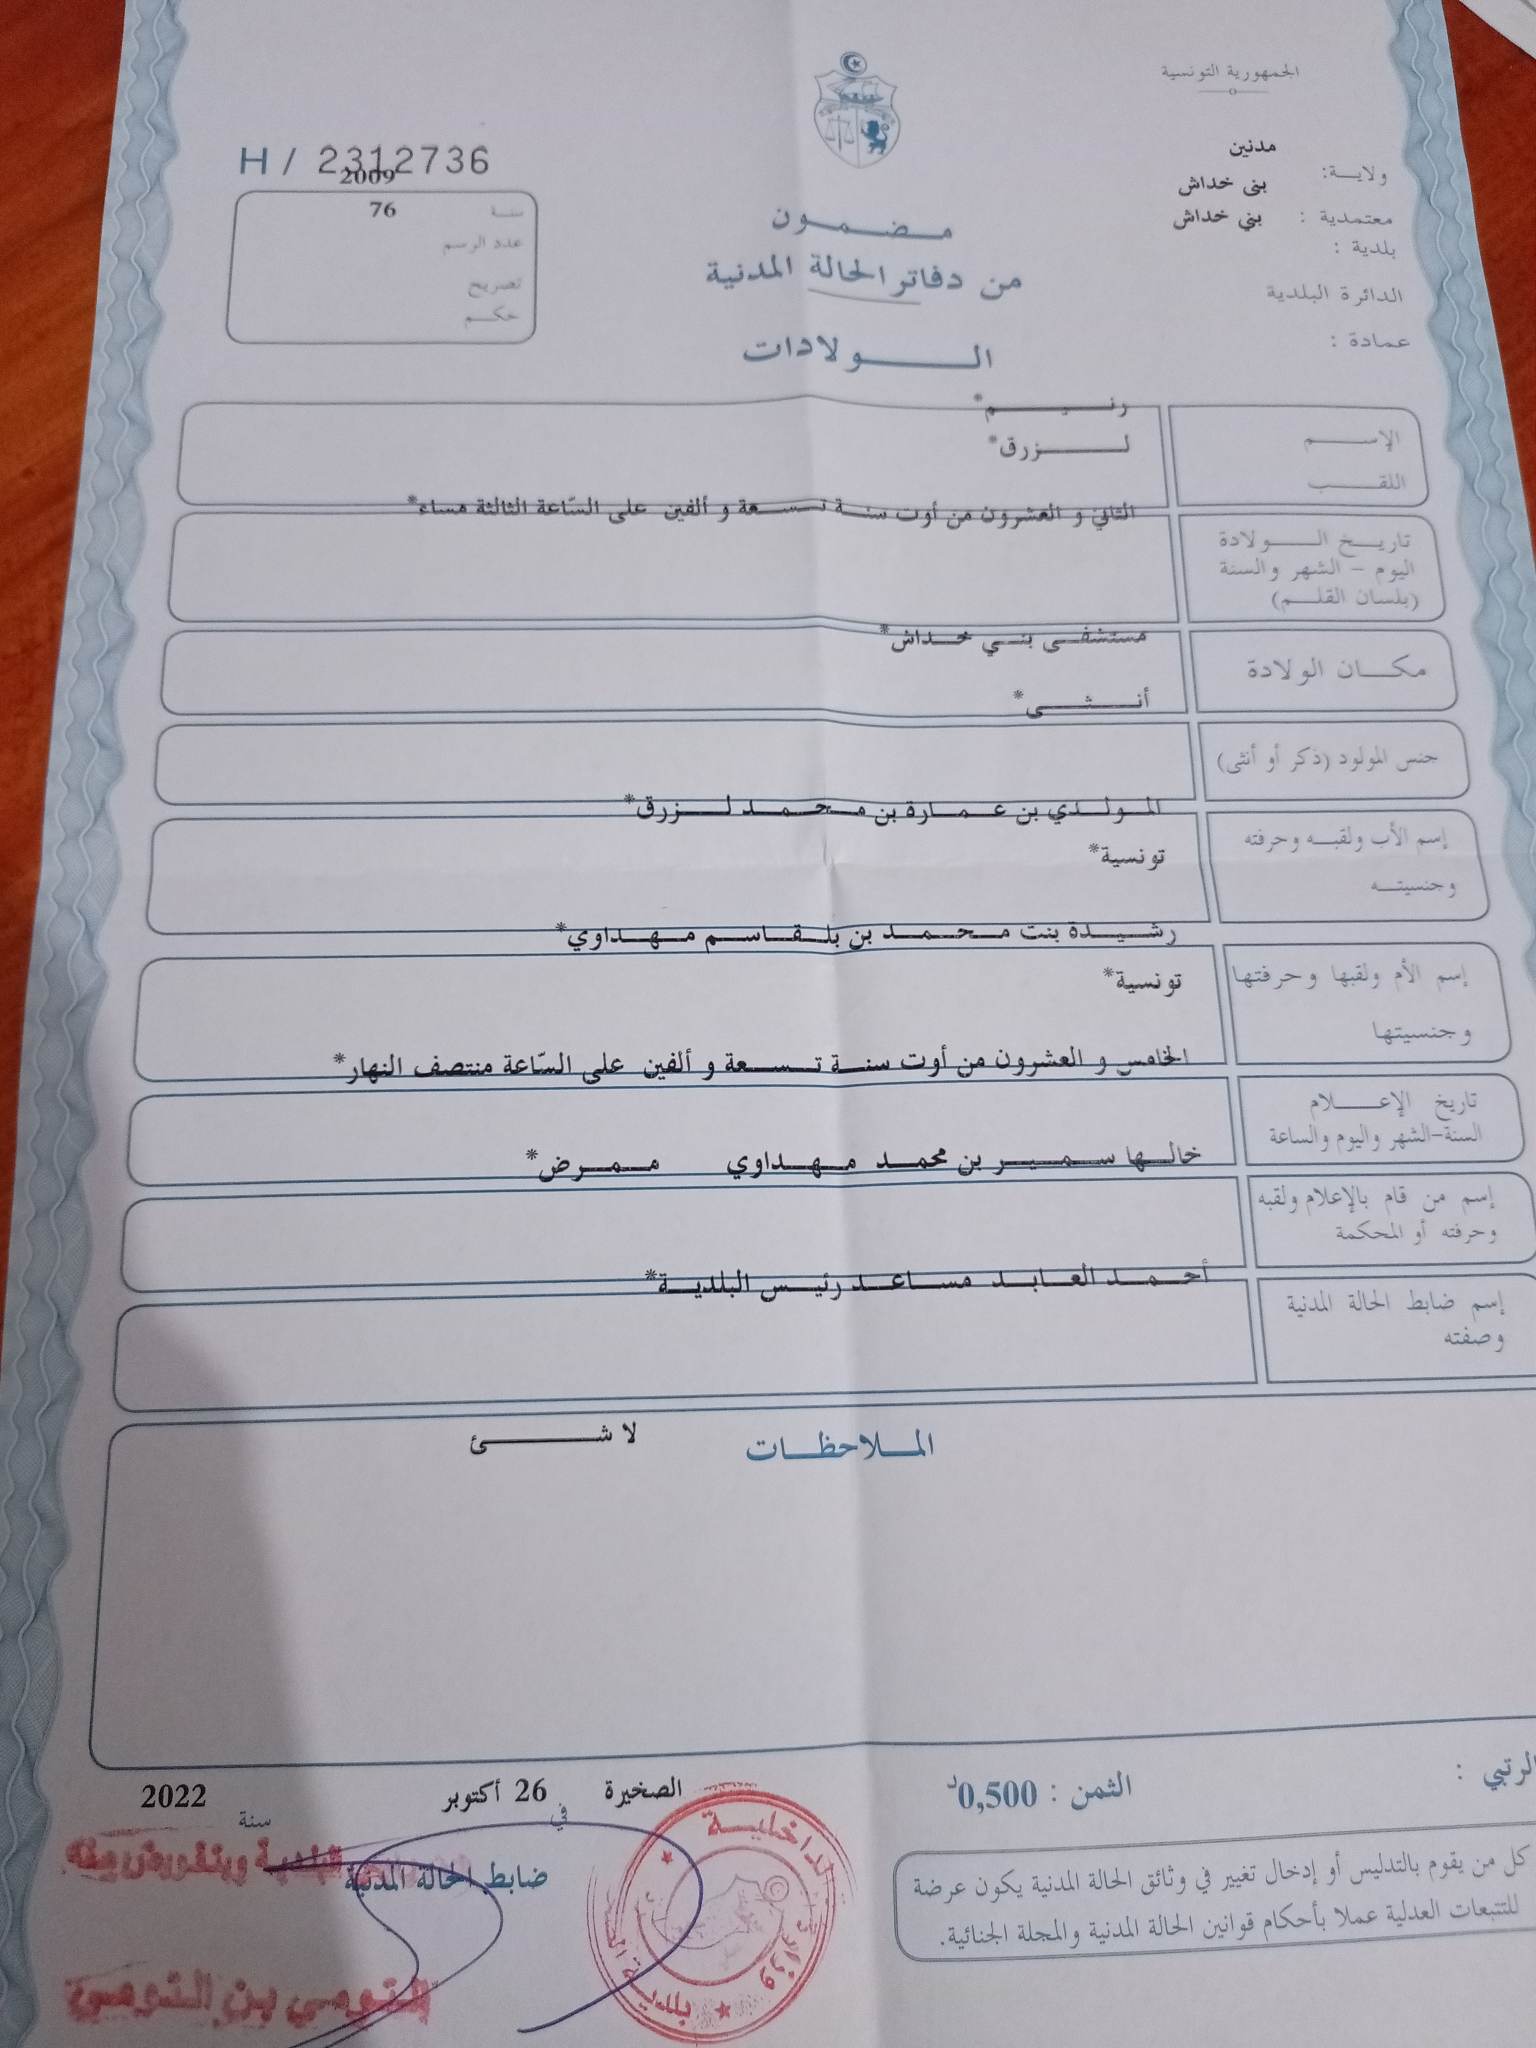 الجمهورية التونسية
مدنين
ولايـــة:
بنى خداش
معتمدية :
بني خداش
بلدية :
الدائرة البلدية
عمادة :
مضمون
من دفاتر الحالة المدنية
الولادات
H / 2312736
2009
سنة 76
عدد الرسم
تصريح
حكم
رنيم*
الإسم
لزرق*
اللقب
الثاني و العشرون من أوت سنة تسعة و ألفين على السّاعة الثالثة مساء*
تاريخ الولادة
اليوم - الشهر والسنة
(بلسان القلم)
مستشفى بني خداش*
مكان الولادة
أنثى*
جنس المولود (ذكر أو أنثى)
المولدي بن عمارة بن محمد لزرق*
إسم الأب ولقبه وحرفته
تونسية*
وجنسيته
رشيدة بنت محمد بن بلقاسم مهداوي*
إسم الأم ولقبها وحرفتها
تونسية*
وجنسيتها
الخامس و العشرون من أوت سنة تسعة و ألفين على السّاعة منتصف النهار*
تاريخ الإعلام
السنة-الشهر واليوم والساعة
خالها سمير بن محمد مهداوي ممرض*
إسم من قام بالإعلام ولقبه
وحرفته أو المحكمة
أحمد العابد مساعد رئيس البلدية*
إسم ضابط الحالة المدنية
وصفته
الملاحظات لا شئ
الرتبي :
الثمن : 0,500د
الصخيرة في 26 أكتوبر سنة 2022
ضابط الحالة المدنية
كل من يقوم بالتدليس أو إدخال تغيير في وثائق الحالة المدنية يكون عرضة
للتتبعات العدلية عملا بأحكام قوانين الحالة المدنية والمجلة الجنائية.
وزارة الداخلية
بلدية
التومي بن التومي